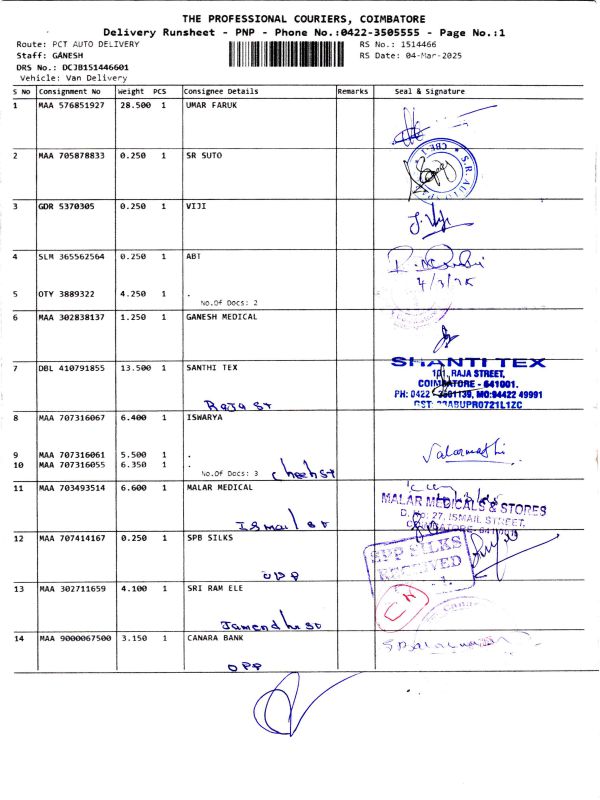 THE PROFESSIONAL COURIERS, COIMBATORE
Delivery Runsheet - PNP - Phone No.:0422-3505555 - Page No.:1
Route: PCT AUTO DELIVERY RS No.: 1514466
Staff: GANESH RS Date: 04-Mar-2025
DRS No.: DCJB151446601
Vehicle: Van Delivery
S No Consignment No Weight PCS Consignee Details Remarks Seal & Signature
1 MAA 576851927 28.500 1 UMAR FARUK
2 MAA 705878833 0.250 1 SR SUTO
CBE-1 S.R. AUTO
3 GDR 5370305 0.250 1 VIJI
4 SLM 365562564 0.250 1 ABT
4/3/25
5 OTY 3889322 4.250 1 .
No.Of Docs: 2
6 MAA 302838137 1.250 1 GANESH MEDICAL
7 DBL 410791855 13.500 1 SANTHI TEX
SHANTI TEX
101, RAJA STREET,
COIMBATORE - 641001.
PH: 0422 MO:94422 49991
Raja St
8 MAA 707316067 6.400 1 ISWARYA
9 MAA 707316061 5.500 1 .
10 MAA 707316055 6.350 1 .
No.Of Docs: 3
Valarmathi
11 MAA 703493514 6.600 1 MALAR MEDICAL
MALAR MEDICALS & STORES
D. No: 27, ISMAIL STREET,
Ismail St
12 MAA 707414167 0.250 1 SPB SILKS
SPP SILKS
RECEIVED
OPP
13 MAA 302711659 4.100 1 SRI RAM ELE
14 MAA 9000067500 3.150 1 CANARA BANK
OPP